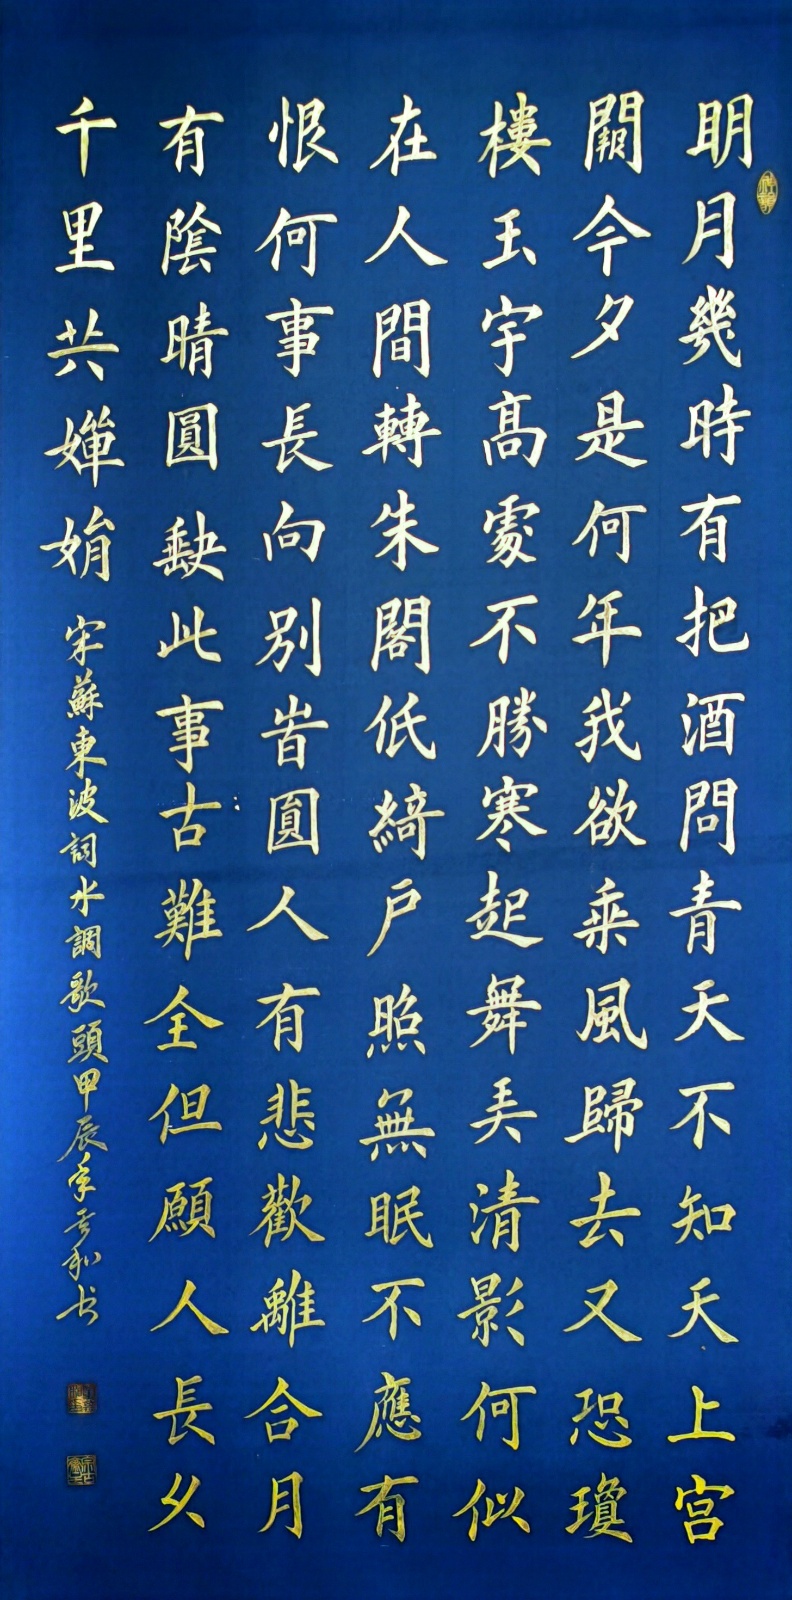 明月幾時有把酒問青天不知天上宮
闕今夕是何年我欲乘風歸去又恐瓊
樓玉宇高處不勝寒起舞弄清影何似
在人間轉朱閣低綺戶照無眠不應有
恨何事長向別時圓人有悲歡離合月
有陰晴圓缺此事古難全但願人長久
千里共嬋娟
宋蘇東波詞水調歌頭甲辰年
和书